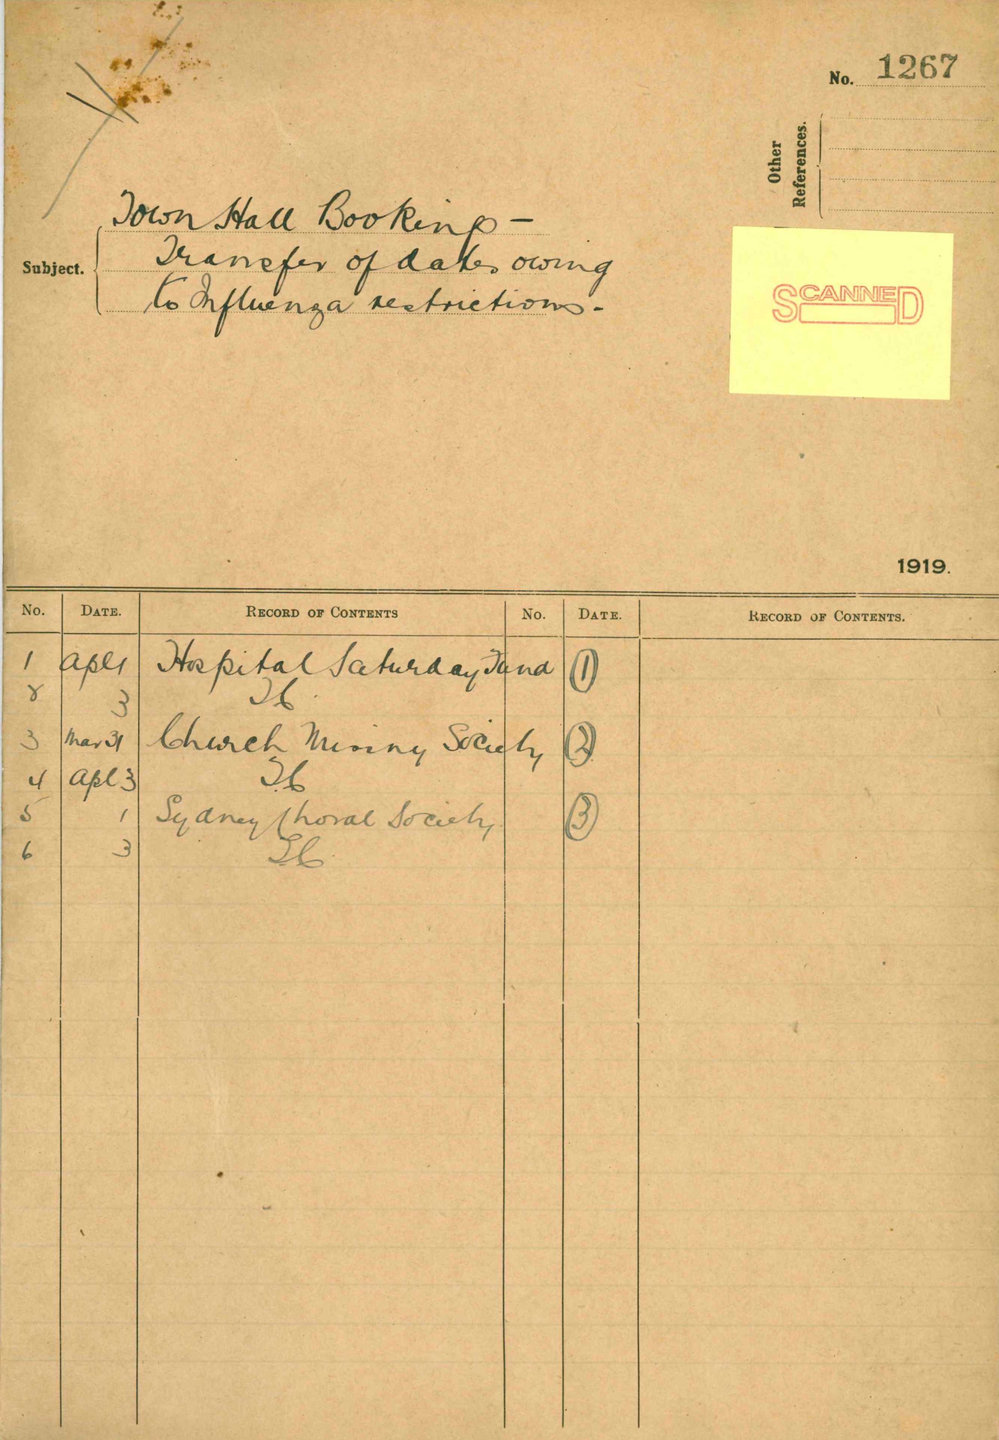 No. 1267
Other
References.
Town Hall Booking –
Subject. Transfer of dates owing
to Influenza restrictions.
SCANNED
1919.
No. DATE. RECORD OF CONTENTS No. DATE. RECORD OF CONTENTS.
1 Apl 1 Hospital Saturday Fund 1
3
3 Mar 31 Church Missny Society 2
4 Apl 3
5 1 Sydney Choral Society 3
6 3